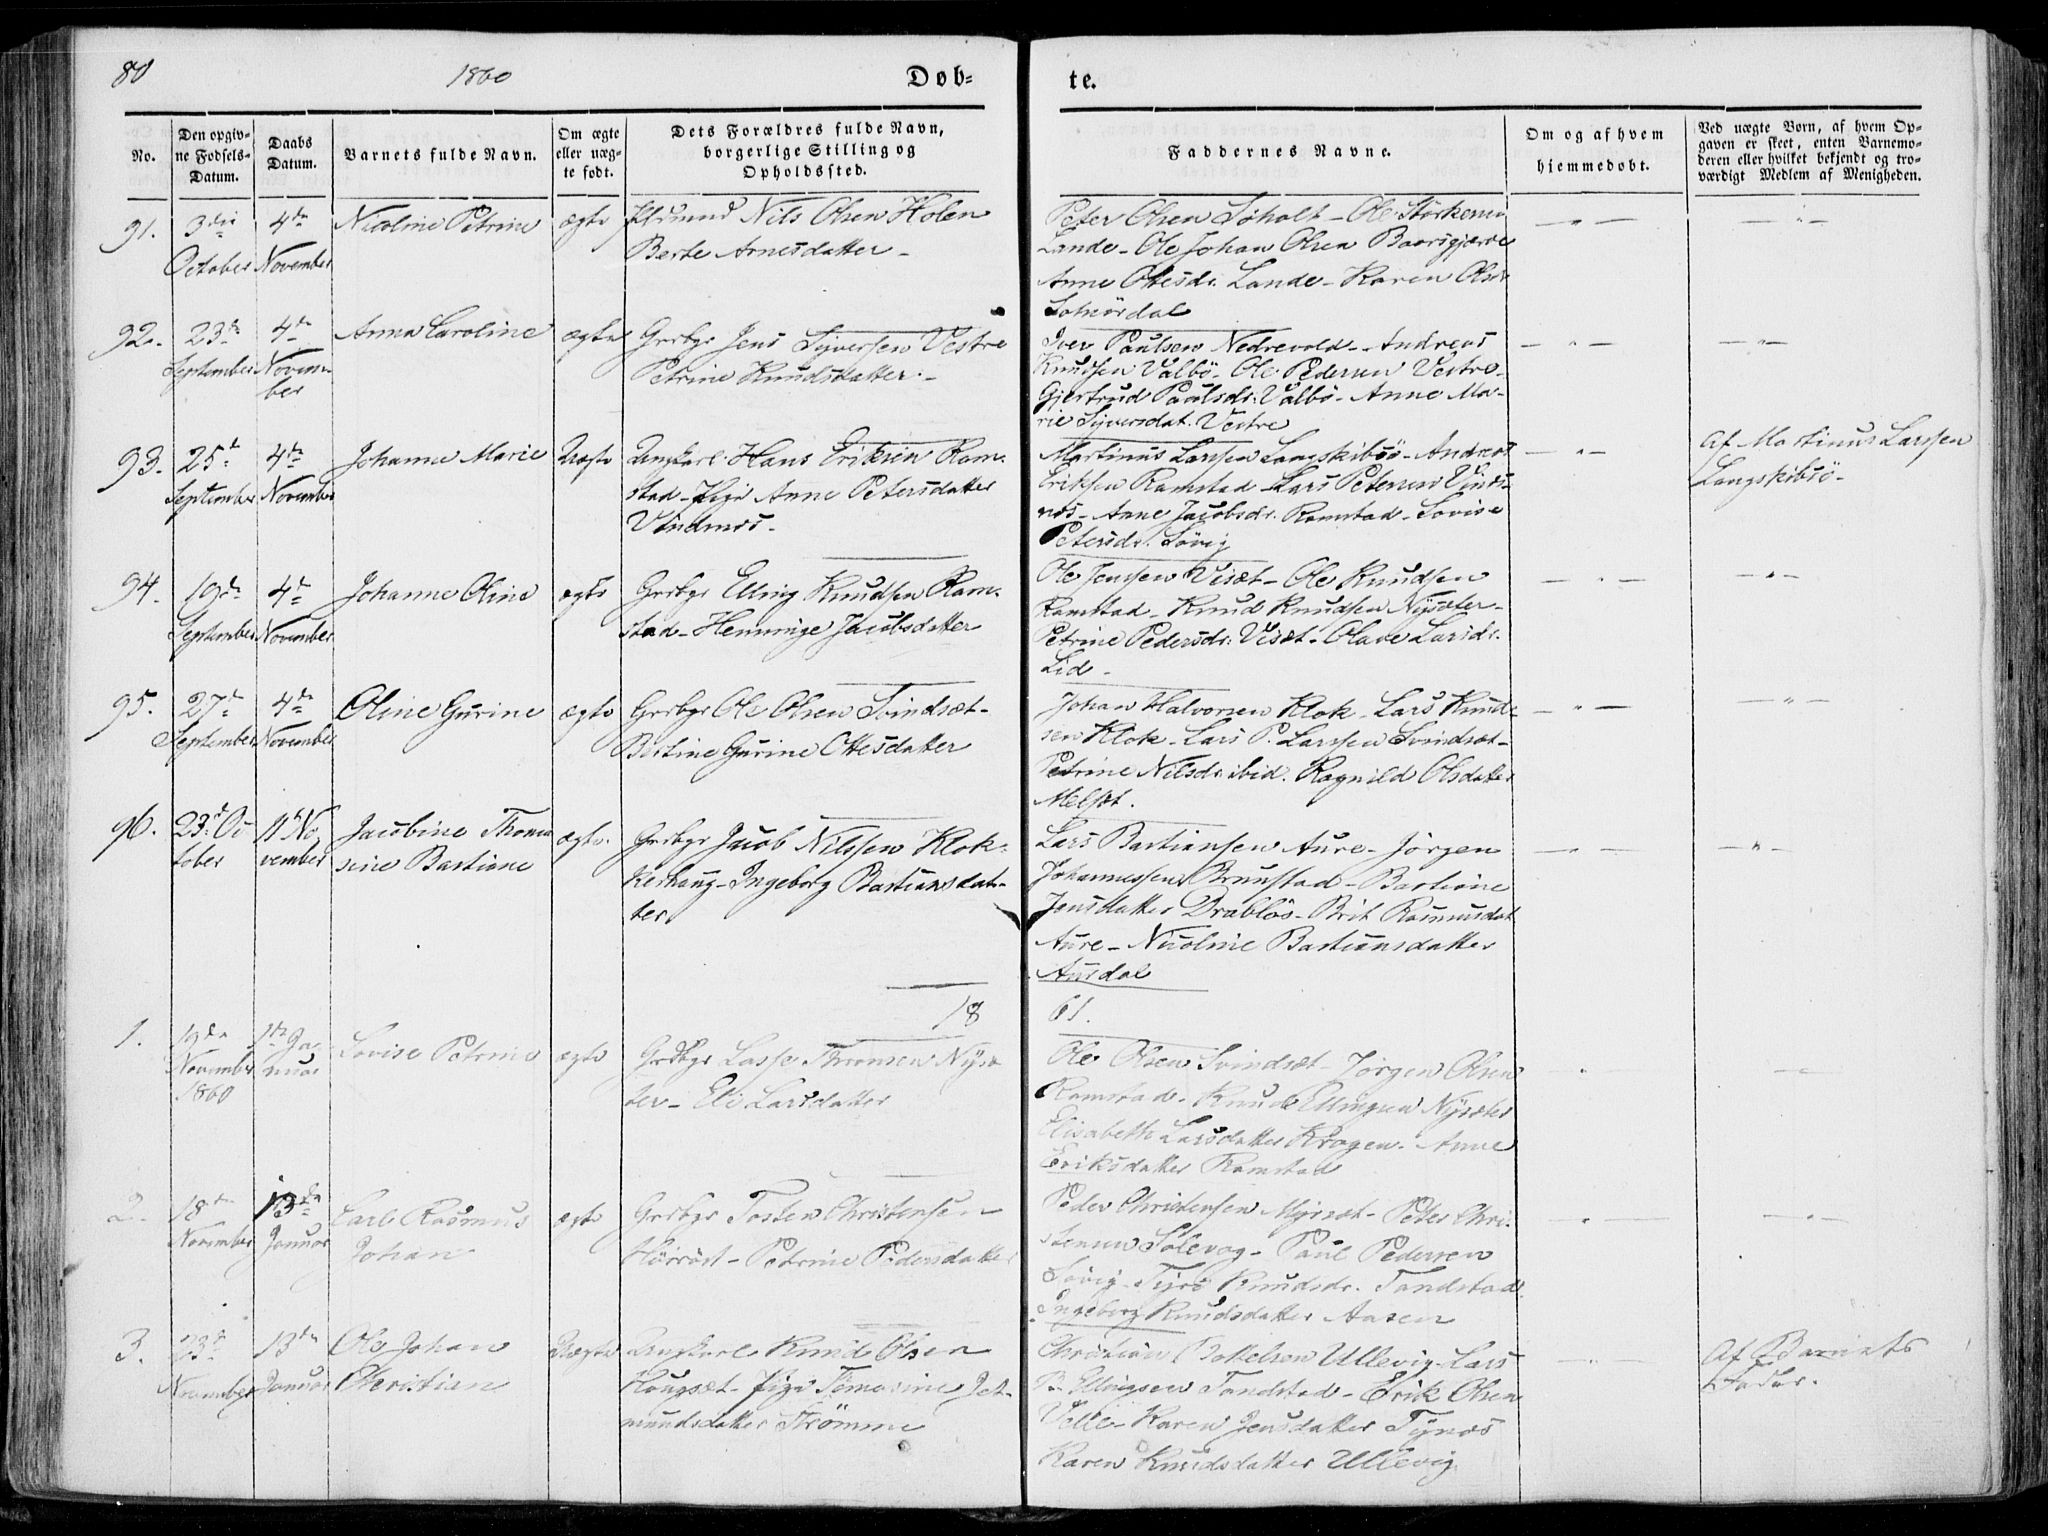 80
1860
Døb-
te.
No.
Den opgiv-
ne Fødsels-
Datum.
Daabs
Datum.
Barnets fulde Navn.
Om ægte
eller uæg-
te født.
Dets Forældres fulde Navn,
borgerlige Stilling og
Opholdssted.
Faddernes Navne.
Om og af hvem
hjemmedøbt.
Ved uægte Børn, af hvem Op-
gaven er skeet, enten Barnemo-
deren eller hvilket bekjendt og tro-
værdigt Medlem af Menigheden.
91.
3die
October
4de
November
Nicoline Petrine
ægte
Nils Olsen Holen
Berte Arnesdatter -
Peter Olsen Søholt - Ole Størkersen
Lande - Ole Johan Olsen
Anne Ottesdr. Lande - Karen Olsdr
92.
23de
September
4de
Novem-
ber
Anna Caroline
ægte
Grbgr Jens Syversen Vestre
Petrine Knudsdatter -
Iver Paulsen Nedrevold - Andreas
Knudsen Valbø - Ole Pedersen Vestre -
Gjertrud Paulsdr: Valbø - Anne Ma-
rie Syversdat. Vestre
93.
25de
September
4de
November
Johanne Marie
Uægte
Ungkarl Hans Eriksen Ram-
stad - Pige Anne Petersdatter
Vindnæs -
Martinus Larssen Langskibsø - Andreas
Eriksen Ramstad - Lars Petersen Vind-
næs - Anne Jacobsdr. Ramstad - Lovise
Petersdr. Søvig
Af Martinus Larssen
Langskibsø -
94.
19de
September
4de
November
Johanne Oline
ægte
Grbgr Elling Knudsen Ram-
stad - Henninge Jacobsdatter
Ole Jenssen Viset - Ole Knudsen
Ramstad - Knud Knudsen Nysæter -
Petrine Pedersdr: Viset - Olave Larsdr.
Lid -
95.
27de
September
4de
November
Oline Gurine
ægte
Grbgr Ole Olsen Svindsæt -
Bertine Gurine Ottesdatter
Johan Halvorsen Klok - Lars Knud-
sen Klok - Lars P. Larssen Svindsæt -
Petrine Nilsdr ibid. Ragnild Olsdatter
Melsæt.
96.
23de Oc
tober
11te No
vember
Jacobine Thoma
sine Bastiane
ægte.
Grbgr Jacob Nilssen Klok-
kerhaug - Ingeborg Bastiansdat-
ter
Lars Bastiansen Aure - Jørgen
Johannessen Brunstad - Bastiane
Jensdatter Drabløs - Brit Rasmusdat
Aure - Nicoline Bastiansdatter
Aurdal
18
61.
1.
19de
November
1860
1ste Ja-
nuar
Lovise Petrine
ægte
Grdbgr Lasse Thronsen Nysæ
ter - Eli Larsdatter
Ole Olsen Svindsæt - Jørgen Olsen
Ramstad - Knud Ellingsen Nysæter
Elisabeth Larsdatter Kragen - Anne
Eriksdatter Ramstad
2.
18de
November
13de
Januar
Carl Rasmus
Johan
ægte
Grbgr Tosten Christensen
- Petrine Pedersdatter
Peder Christensen Myrsæt - Peter Chri-
stensen Solevog - Paul Pedersen
Søvig - Knudsdr. Tandstad
Ingeborg Knudsdatter Aasen
3.
23de
November
13de
Januar
Ole Johan
Christian
Uægte
Ungkarl Knud Olsen
Haugsæt - Pige Tomasine Jet-
mundsdatter Strømme
Christian Bottelsen Ullevig - Lars
B. Ellingsen Tandstad - Erik Olsen
Velle - Karen Jensdatter Tynæs
Karen Knudsdatter Ullevig
Af Barnets
Fader.